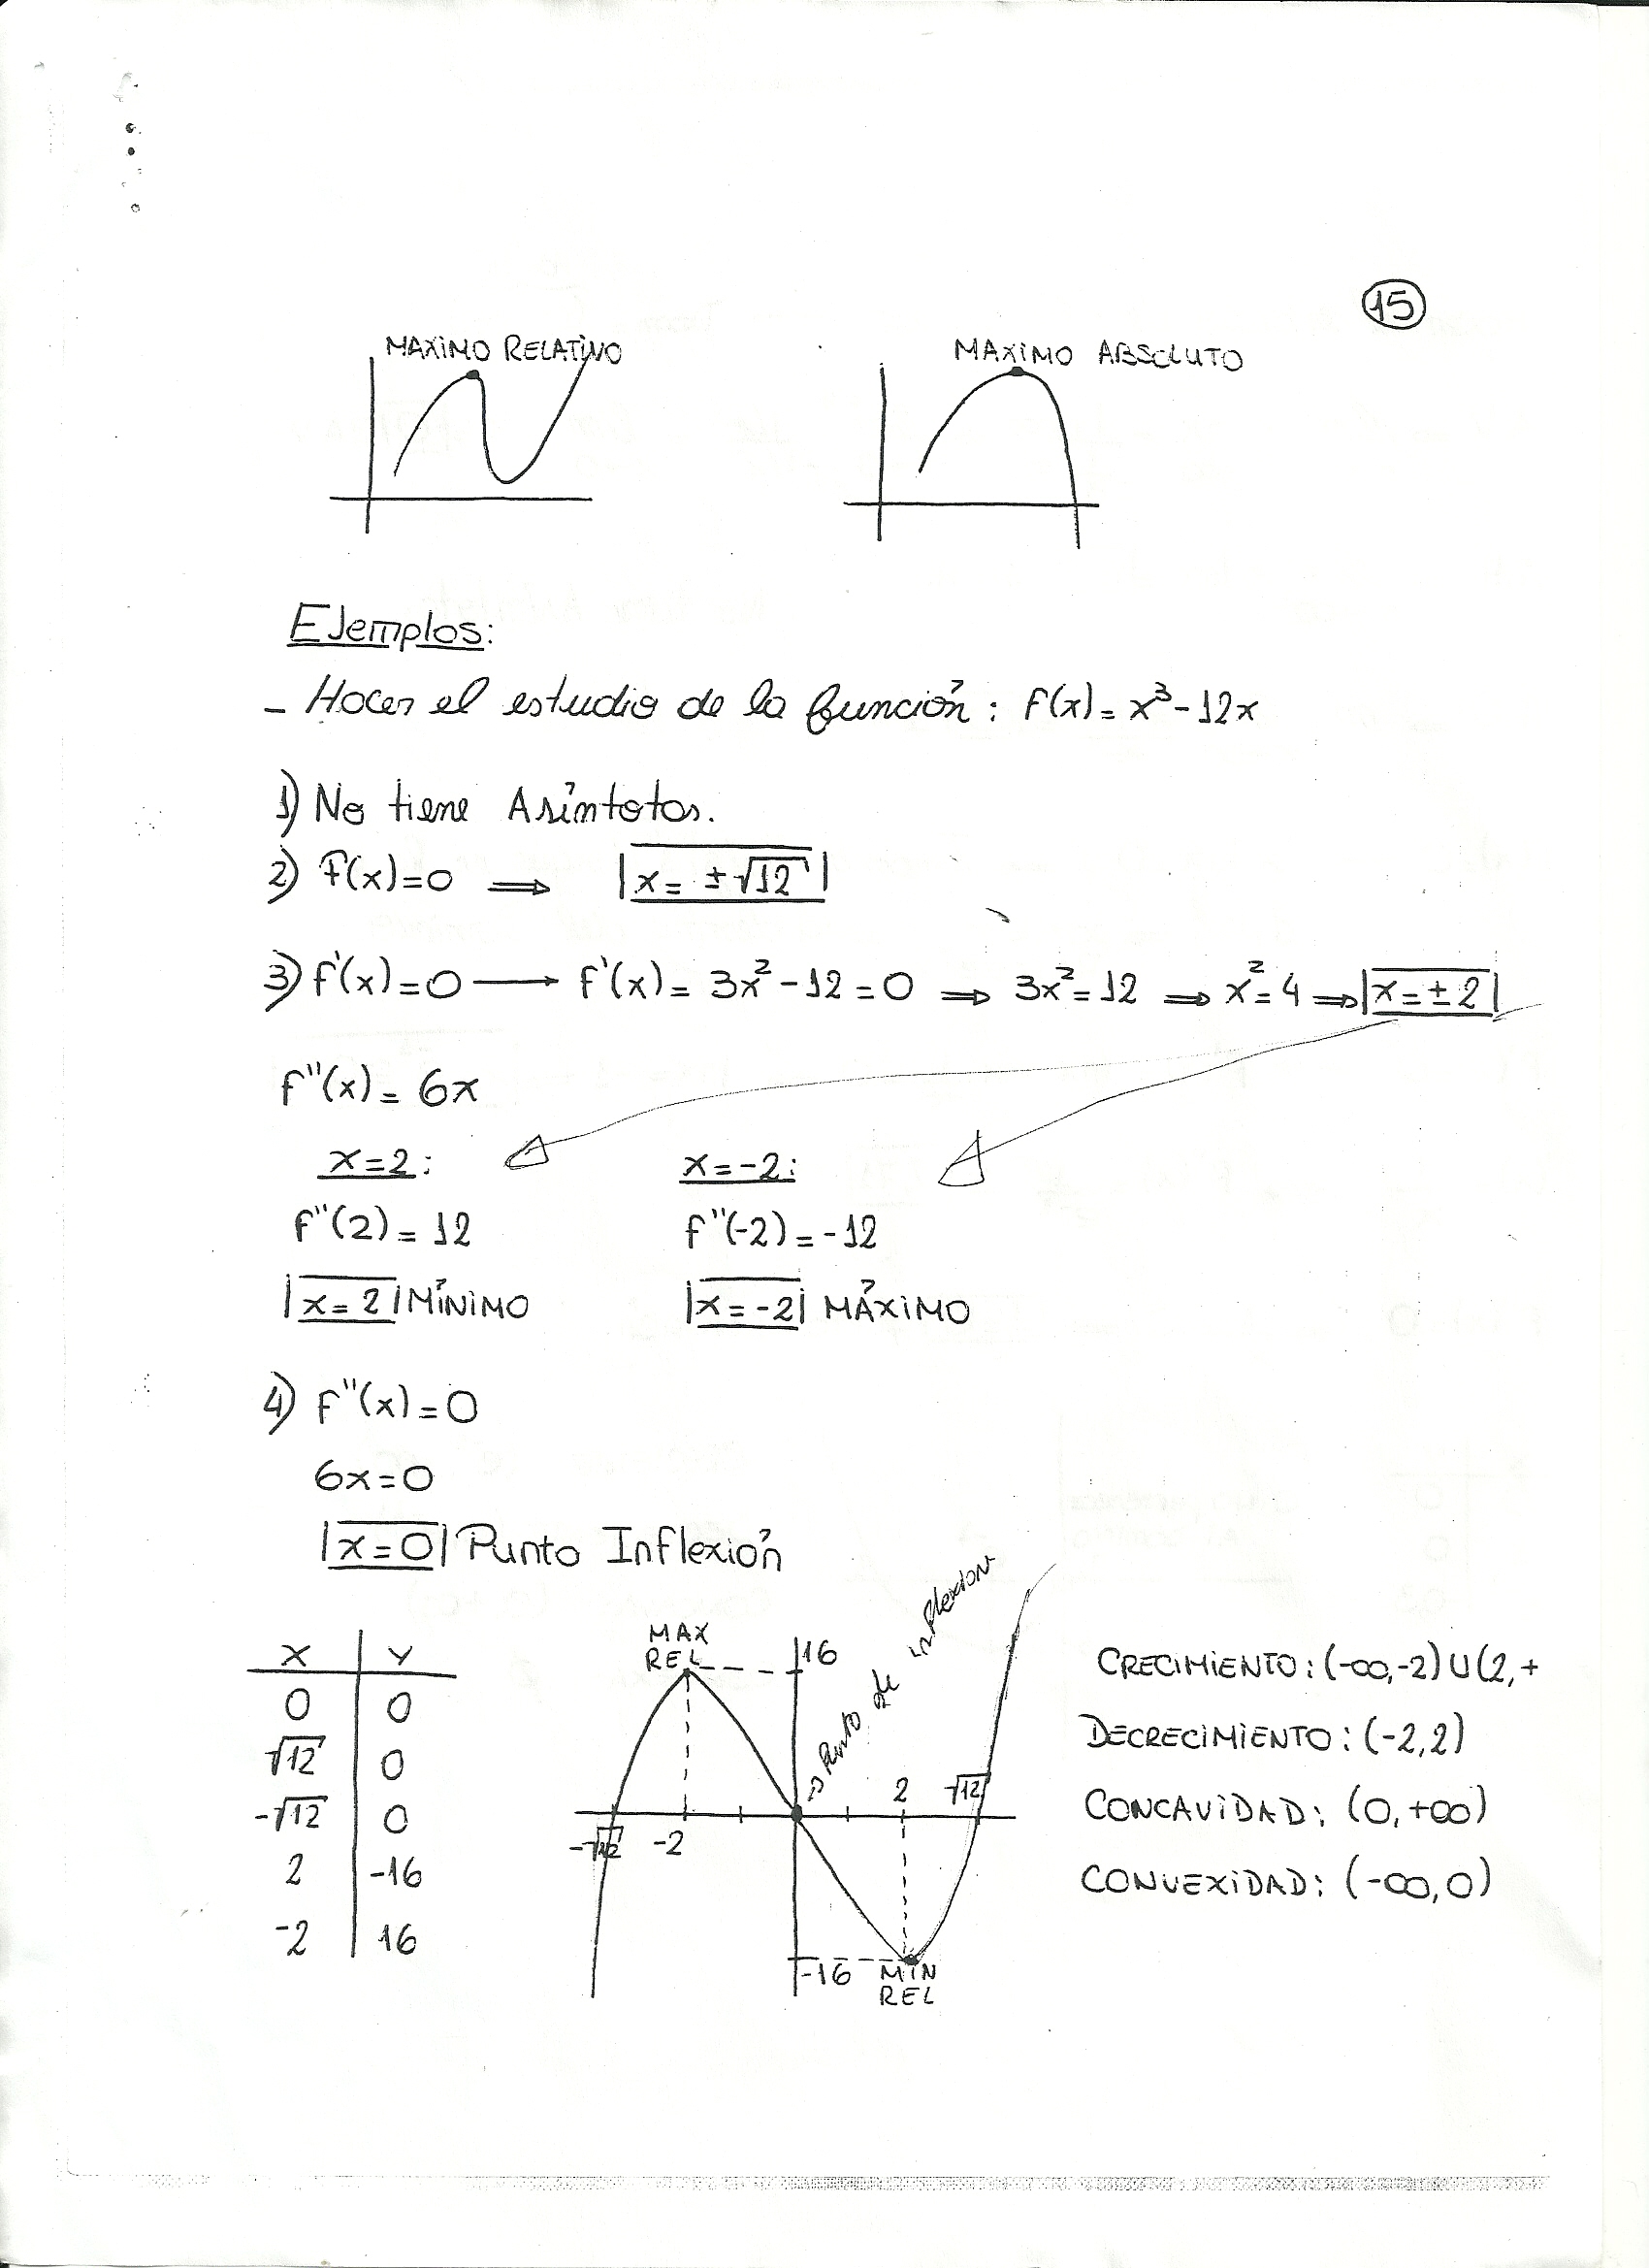 15
MAXIMO RELATIVO
MAXIMO ABSOLUTO
Ejemplos:
- Hacer el estudio de la función: f(x) = x³ - 12x
1) No tiene Asíntotas.
2) F(x) = 0 ⟹ |x = ±√12|
3) f'(x) = 0 ⟶ f'(x) = 3x² - 12 = 0 ⟹ 3x² = 12 ⟹ x² = 4 ⟹ |x = ±2|
f''(x) = 6x
x = 2: x = -2:
f''(2) = 12 f''(-2) = -12
|x = 2| MÍNIMO |x = -2| MÁXIMO
4) F''(x) = 0
6x = 0
|x = 0| Punto Inflexión
x y
0 0
√12 0
-√12 0
2 -16
-2 16
MAX
REL
16
⇒ Punto de inflexion
-√12
-2
2
√12
-16
MIN
REL
CRECIMIENTO: (-∞,-2) U (2,+
DECRECIMIENTO: (-2,2)
CONCAVIDAD: (0,+∞)
CONVEXIDAD: (-∞,0)